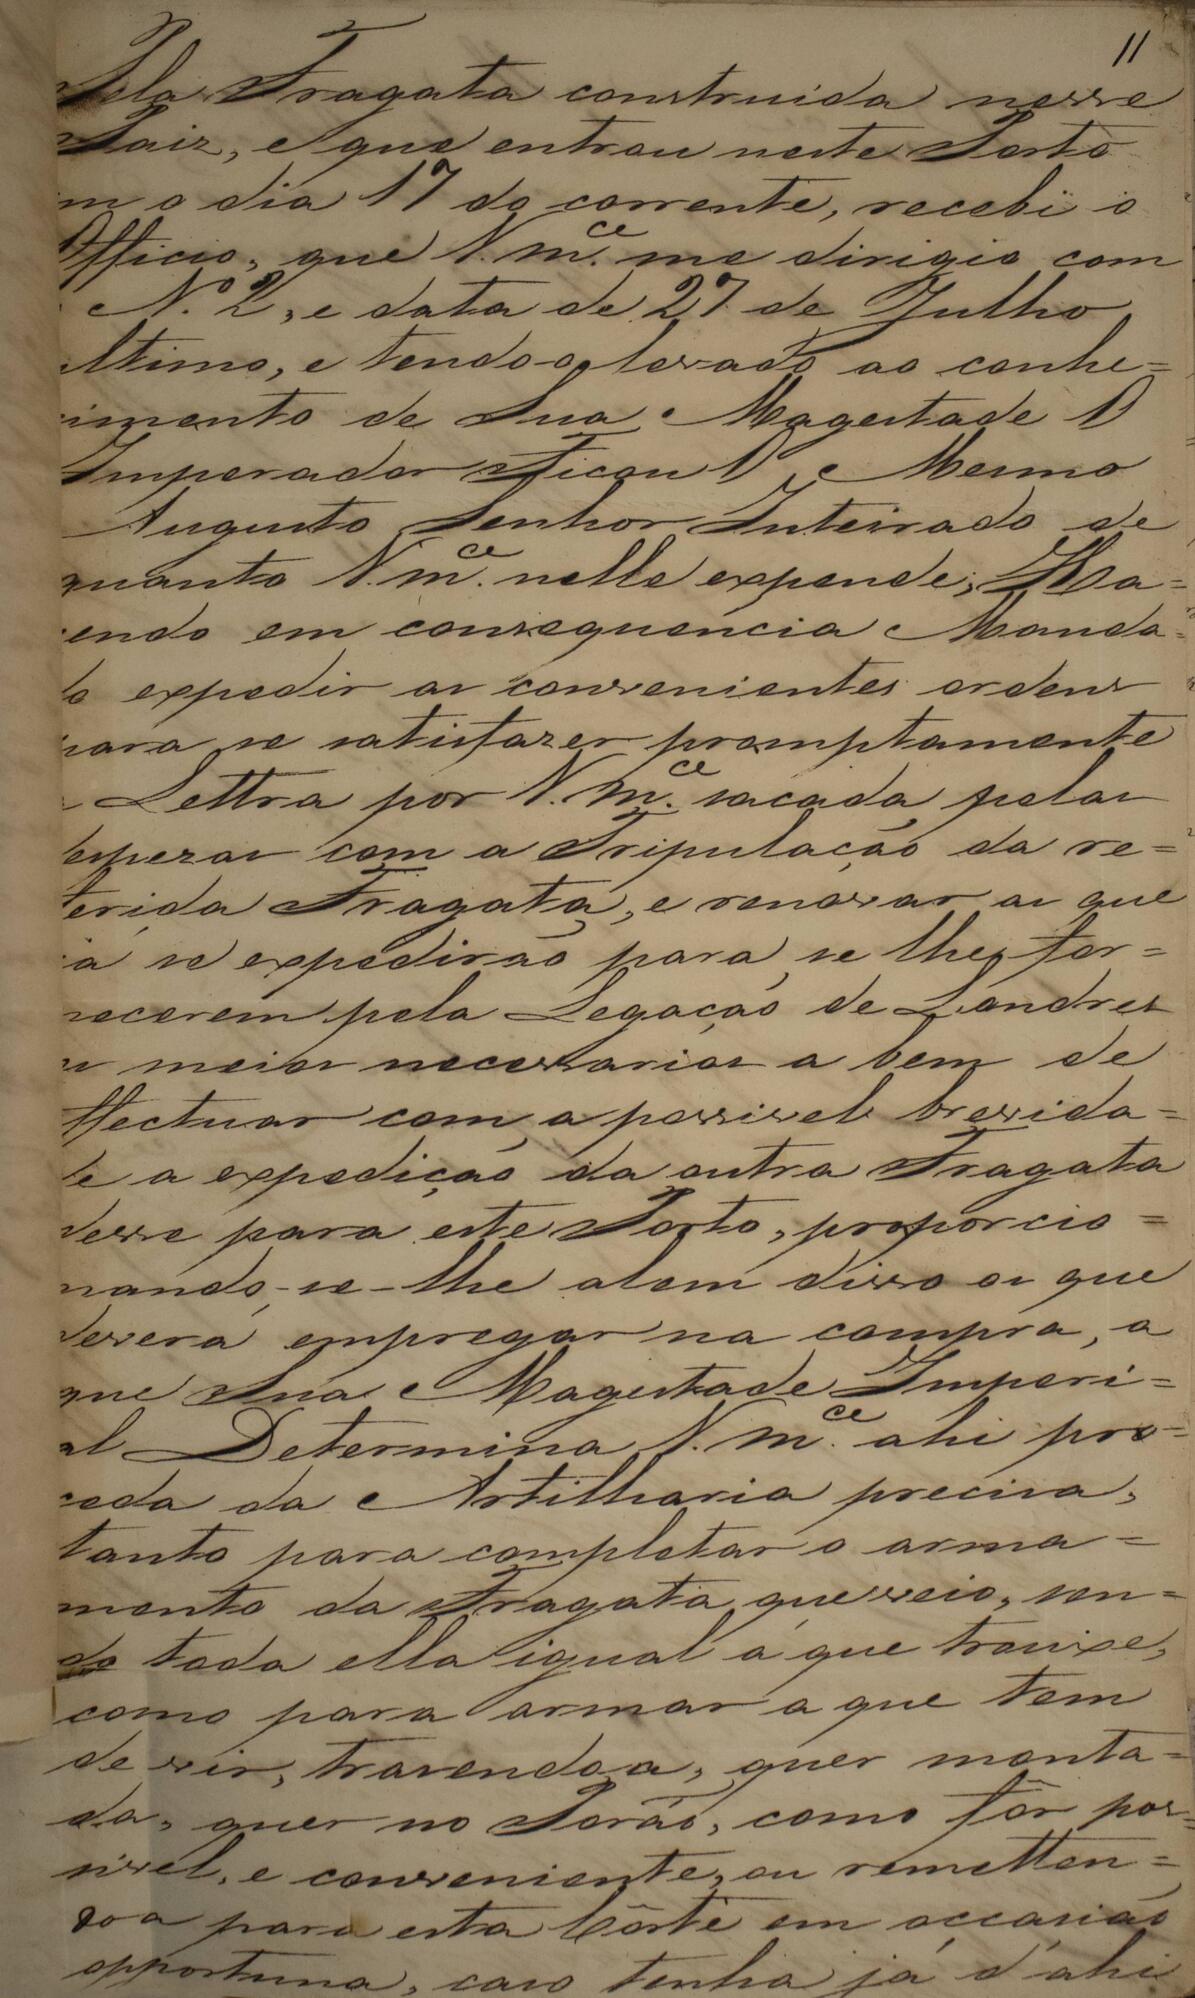 11
Pela Fragata construida nesse
Paiz, e que entrou neste Porto
m o dia 17 do corrente, recebi o
Officio, que V. m.ce me dirigio com
N.º 2, e data de 27 de Julho
ltimo, e tendo-o levado ao conhe=
cimento de Sua Magestade O
Imperador Ficou O Mesmo
Augusto Senhor Inteirado de
quanto V. m.ce nelle expende; Ha=
vendo em consequencia Manda=
do expedir as convenientes ordens
para se satisfazer promptamente
a Lettra por V. m.ce sacada pelas
despezas com a Tripulação da re=
ferida Fragata, e renovar as que
já se expedirão para se lhe for=
necerem pela Legação de Londres
os meios necessarios a bem de
effectuar com a possivel brevida=
de a expedição da outra Fragata
desse para este Porto, proporcio=
nando-se-lhe alem disso os que
deverá empregar na compra, a
que Sua Magestade Imperi=
al Determina V. m.ce ahi pro=
ceda da Artilharia precisa,
tanto para completar o arma=
mento da Fragata que veio, sen=
do toda ella igual á que trouxe,
como para armar a que tem
de vir, trazendo-a, quer monta=
da, quer no Porão, como fôr pos=
sivel, e conveniente, ou remetten=
do a para esta Côrte em occasião
opportuna, caso tenha já d'ahi